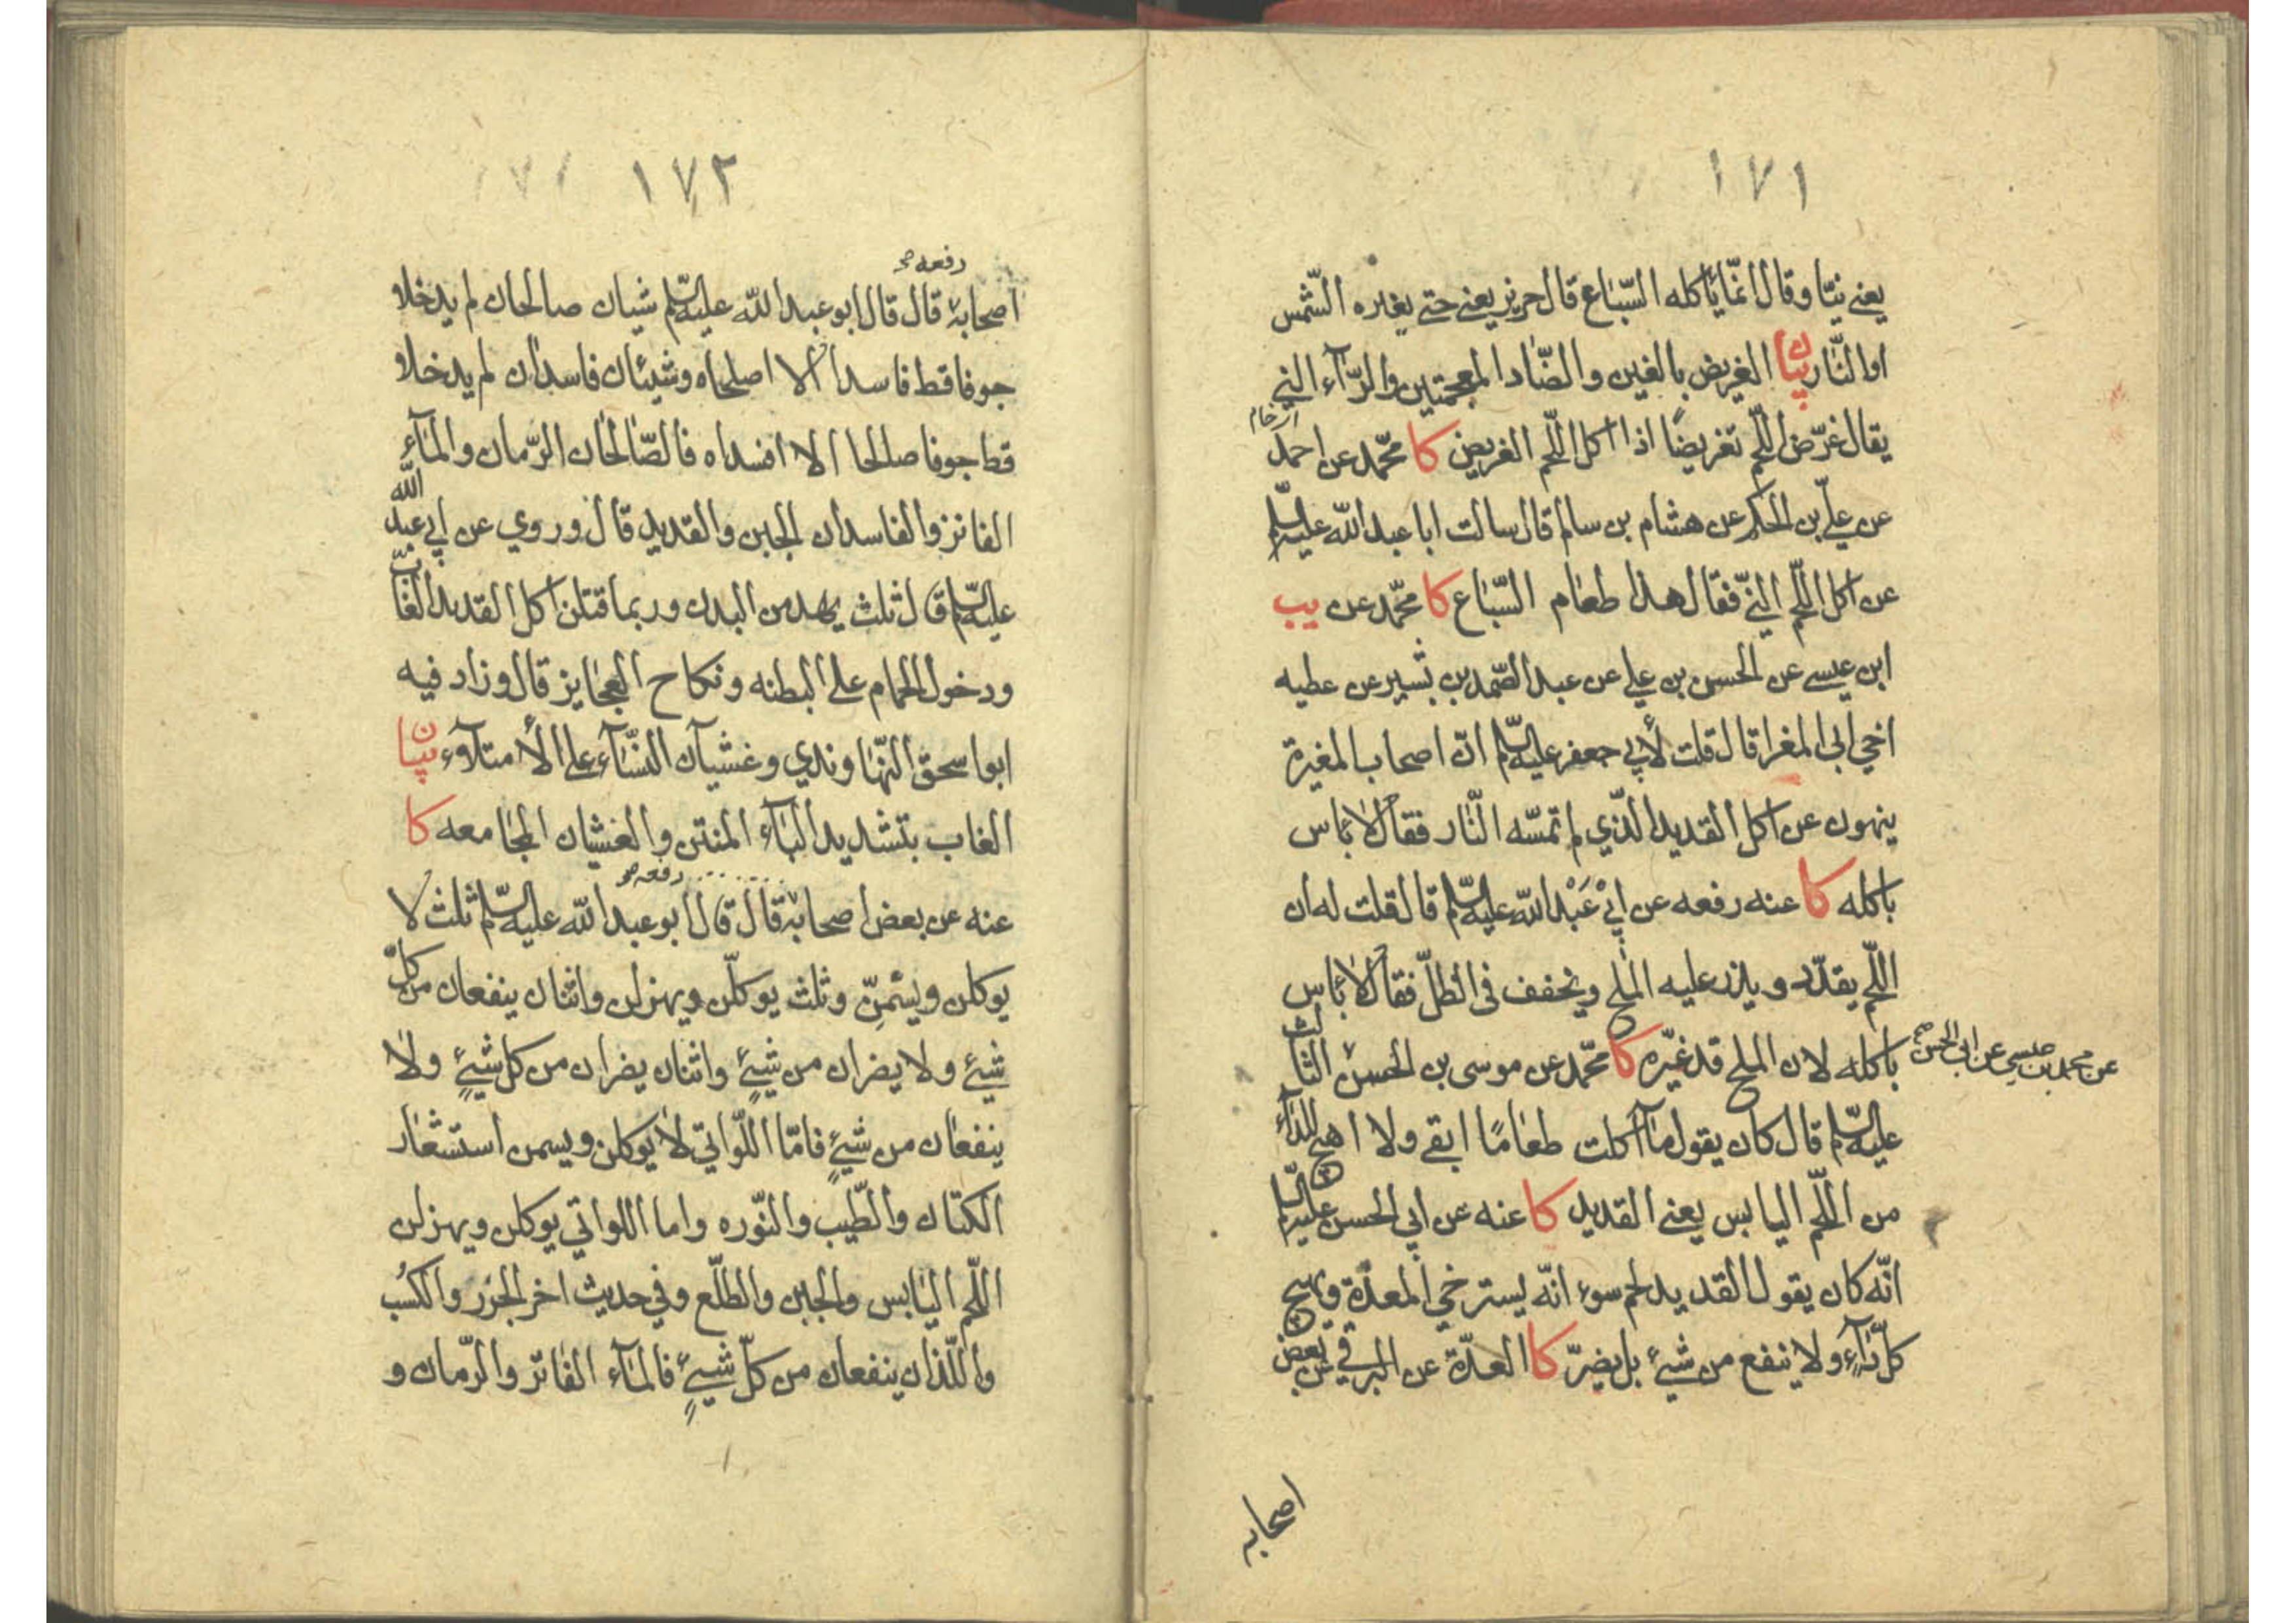 ١٧١
يعني نيّا وقال انمّا يأكله السّباع قال حريز يعني حتى يغيره الشّمس
او النّار بيان الغريض بالغين والضّاد المعجمتين والرّآء الني
اي خام
يقال غرّض اللّحم تغريضًا اذا اكل اللّحم الغريض كا محمّد عن احمد
عن عليّ بن الحكم عن هشام بن سالم قال سالت ابا عبد الله عليه السّلم
عن اكل اللّحم النيّ فقال هذا طعام السّباع كا محمّد عن يب
ابن عيسى عن الحسن بن علي عن عبد الصّمد بن بشير عن عطيه
اخي ابي المغرا قال قلت لأبي جعفر عليه السّلم انّ اصحاب المغيرة
ينهون عن اكل القديد الّذي لم تمسّه النّار فقال لا بأس
باكله كا عنه رفعه عن ابيْ عَبْد الله عليه السّلم قال قلت له ان
اللّحم يقدّد و يذر عليه الملح ويخفف في الظلّ فقال لا بأس
باكله لان الملح قد غيّره كا محمّد عن موسى بن الحسن الثالث
عن محمد بن عيسى عن ابي الحسن صح
عليه السّلم قال كان يقول مآ اكلت طعامًا ابقى ولا اهيج للدآء
من اللّحم اليابس يعني القديد كا عنه عن ابي الحسن عليه السّلم
انّه كان يقول القديد لحم سوء انّه يسترخي المعدة ويهيج
كلّ دآءٍ ولا ينفع من شيءٍ بل يضرّ كا العدّة عن البرقي عن بعض
اصحابه
١٧٢
رفعه صح
اصحابهٔ قال قال ابو عبد الله عليه السّلم شيان صالحان لم يدخلا
جوفا قط فاسدا الا اصلحاه وشيئان فاسدان لم يدخلا
قط جوفا صالحا الا افسداه فالصّالحان الرّمان والمآء
الفاتر والفاسدان الجبن والقديد قال وروي عن ابي عبد الله
عليه السّلم قال ثلث يهدمن البدن وربما قتلن اكل القديد الغابّ
ودخول الحمام على البطنه ونكاح العجايز قال وزاد فيه
ابو اسحق النّهاوندي وغشيان النّسآء على الأمتلآء بيان
الغاب بتشديد البآء المنتن والغشيان المجامعه كا
رفعه صح
عنه عن بعض اصحابهٔ قال قال ابو عبد الله عليه السّلم ثلث لا
يوكلن ويسْمنّ وثلث يوكلّن ويهزلن واثنان ينفعان من كلّ
شيءٍ ولا يضران من شيءٍ واثنان يضران من كل شيءٍ ولا
ينفعان من شيءٍ فامّا اللّواتي لا يوكلن ويسمن استشعار
الكتان والطّيب والنّوره واما اللواتي يوكلن ويهزلن
اللّحم اليابس والجبن والطلّع وفي حديث اخر الجَزر والكُسب
واللّذان ينفعان من كلّ شيءٍ فالمآء الفاتر والرّمان و